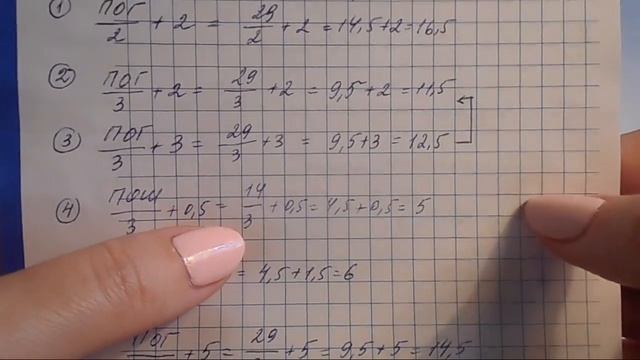 ① ПОГ/2 + 2 = 29/2 + 2 = 14,5+2=16,5
② ПОГ/3 + 2 = 29/3 + 2 = 9,5+2 = 11,5
③ ПОГ/3 + 3 = 29/3 + 3 = 9,5+3 = 12,5
④ ПОШ/3 + 0,5 = 14/3 + 0,5 = 4,5+0,5 = 5
= 4,5+1,5=6
ПОГ + 5 = 29 + 5 = 9,5+5 = 14,5